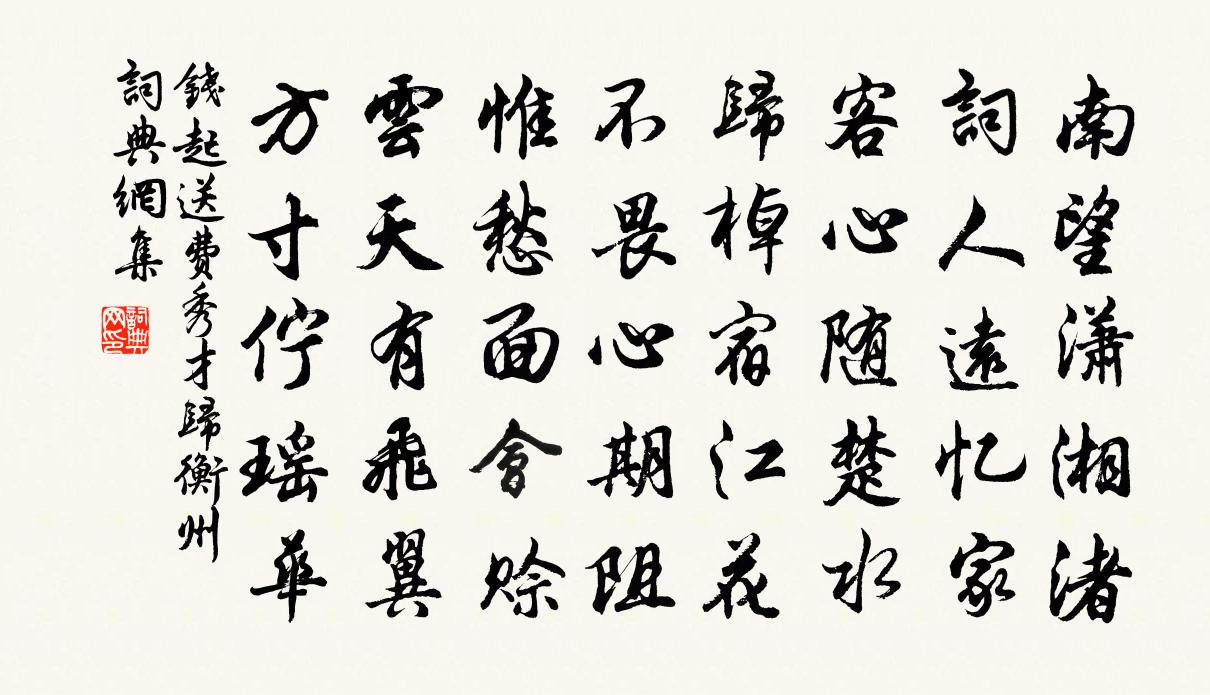 南望瀟湘渚
詞人遠忆家
客心随楚水
歸棹宿江花
不畏心期阻
惟愁面會賒
雲天有飛翼
方寸佇瑶華
錢起送費秀才歸衡州
詞典網集
詞典网印